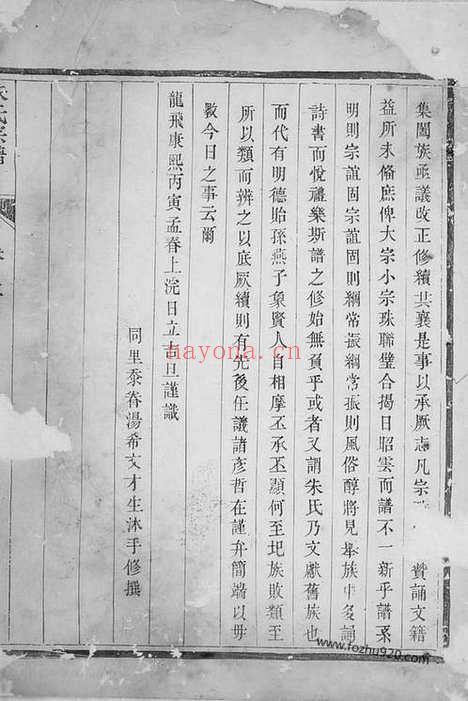 集闔族亟議改正修續共襄是事以承厥志凡宗
贊誦文籍
益所未備庶俾大宗小宗珠聯璧合揭日昭雲而譜不一新乎譜系
明則宗誼固宗誼固則綱常振綱常振則風俗醇將見舉族中多誦
詩書而悅禮樂斯譜之修始無負乎或者又謂朱氏乃文獻舊族也
而代有明德貽孫燕子象賢人自相摩丕承丕顯何至圯族敗類至
所以類而辨之以底厥續則有先後任議諸彥哲在謹弁簡端以毋
數今日之事云爾
龍飛康熙丙寅孟春上浣日立吉旦謹識
同里忝眷湯希文才生沐手修撰
氏宗譜
nayona.cn
www.fozhu920.com